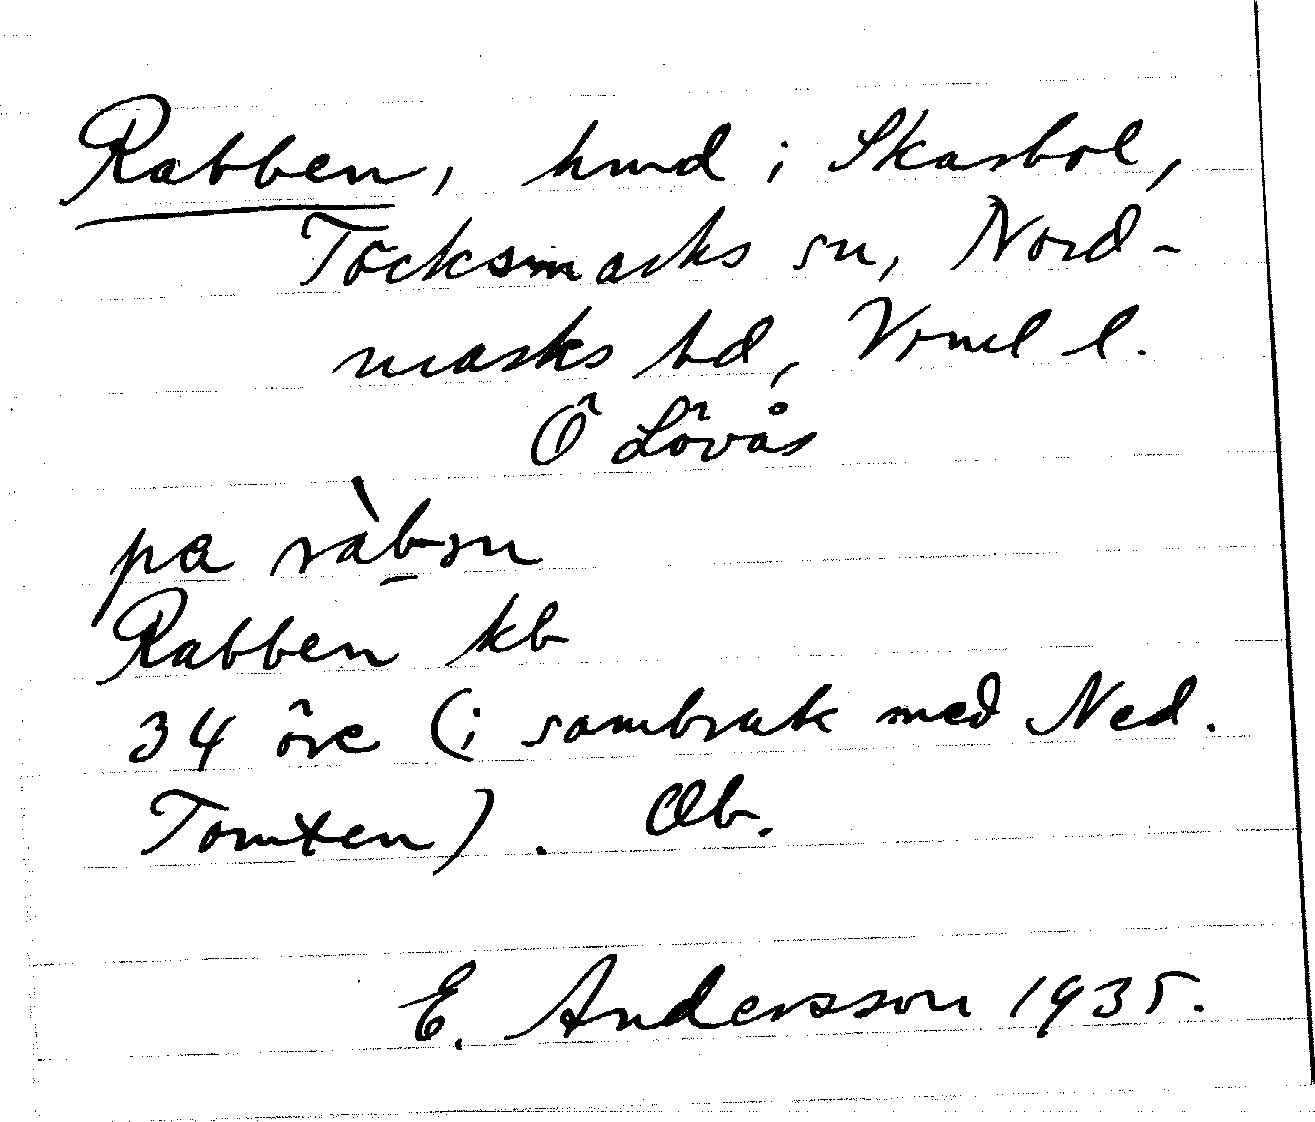 Rabben, hmd i Skarbol,
Töcksmarks sn, Nord-
marks hd, Vrml l.
Ö Lövås
pa ràbm
Rabben kb
34 öre (i sambruk med Ned.
Tomten). Ob.
E. Andersson 1935.